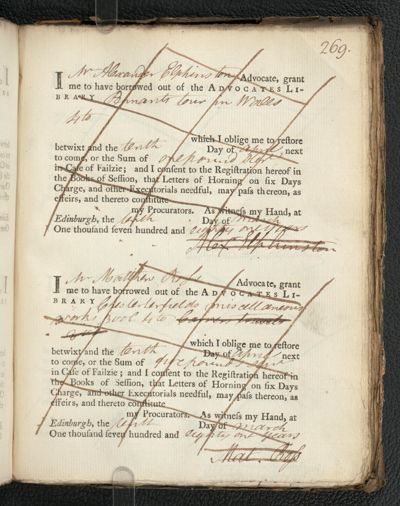 269.
I Mr Alexander Elphinston Advocate, grant
me to have borrowed out of the ADVOCATES LI-
BRARY Penants tour in Wales
4to
which I oblige me to reſtore
betwixt and the tenth Day of April next
to come, or the Sum of one pound
in Caſe of Failzie; and I conſent to the Regiſtration hereof in
the Books of Seſſion, that Letters of Horning on ſix Days
Charge, and other Executorials needful, may paſs thereon, as
effeirs, and thereto conſtitute
my Procurators. As witneſs my Hand, at
Edinburgh, the tenth Day of March
One thouſand ſeven hundred and eighty one years
Alex Elphinston
I Mr Matthew Ross Advocate, grant
me to have borrowed out of the ADVOCATES LI-
BRARY Chesterfields miscellaneous
works vol 4to
which I oblige me to reſtore
betwixt and the tenth Day of April next
to come, or the Sum of pound
in Caſe of Failzie; and I conſent to the Regiſtration hereof in
the Books of Seſſion, that Letters of Horning on ſix Days
Charge, and other Executorials needful, may paſs thereon, as
effeirs, and thereto conſtitute
my Procurators. As witneſs my Hand, at
Edinburgh, the tenth Day of March
One thouſand ſeven hundred and eighty one years
Mat. Ross